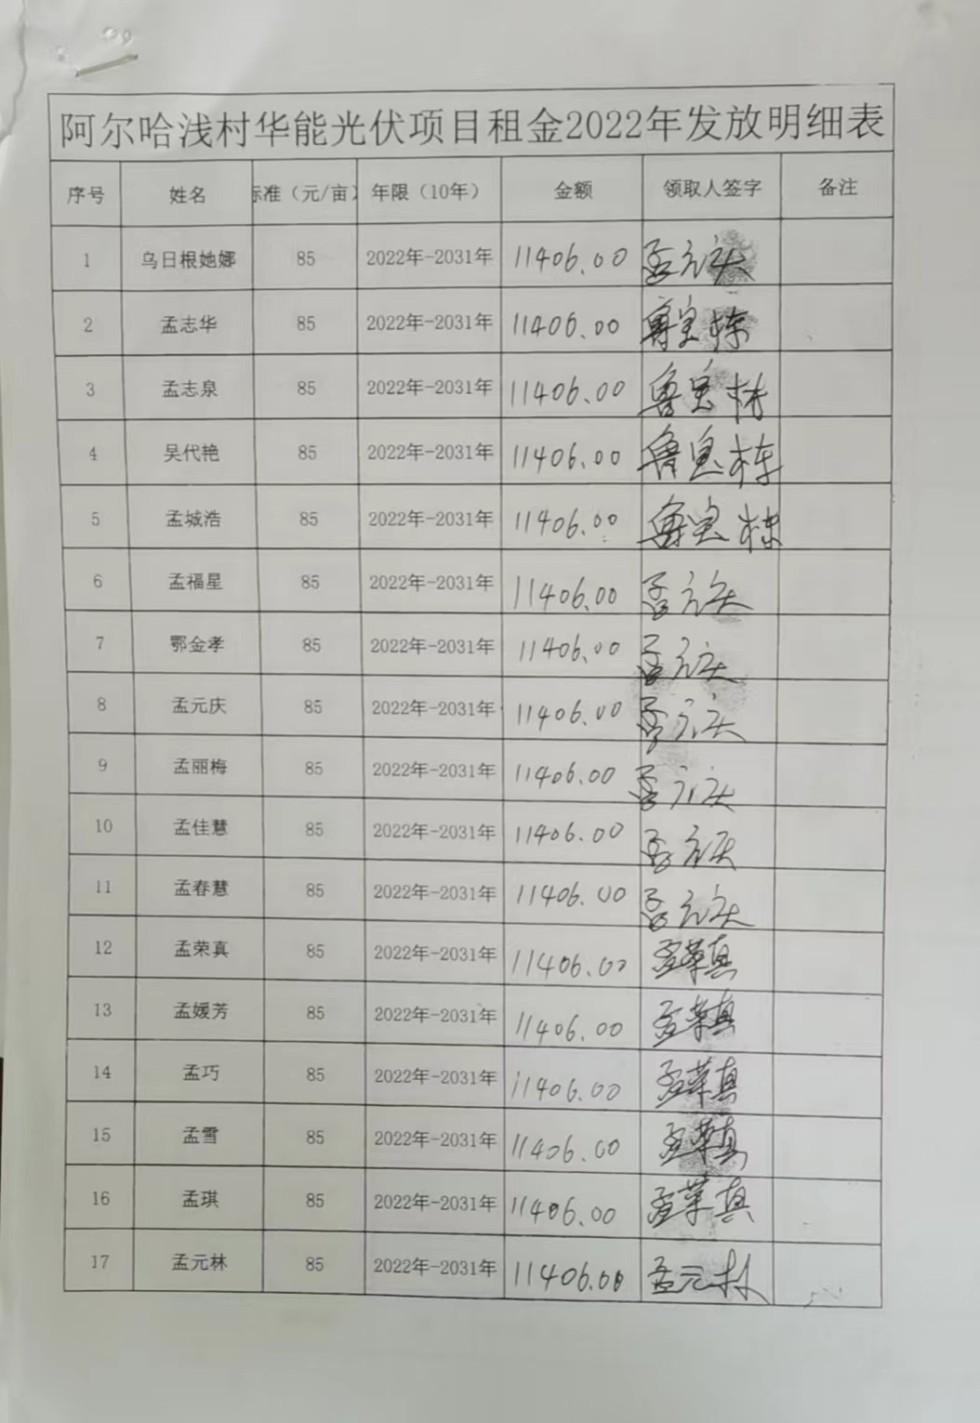 阿尔哈浅村华能光伏项目租金2022年发放明细表
序号 姓名 标准（元/亩） 年限（10年） 金额 领取人签字 备注
1 乌日根她娜 85 2022年-2031年 11406.00 孟元庆
2 孟志华 85 2022年-2031年 11406.00 鲁宝栋
3 孟志泉 85 2022年-2031年 11406.00 鲁宝栋
4 吴代艳 85 2022年-2031年 11406.00 鲁宝栋
5 孟城浩 85 2022年-2031年 11406.00 鲁宝栋
6 孟福星 85 2022年-2031年 11406.00 孟元庆
7 鄂金孝 85 2022年-2031年 11406.00 孟元庆
8 孟元庆 85 2022年-2031年 11406.00 孟元庆
9 孟丽梅 85 2022年-2031年 11406.00 孟元庆
10 孟佳慧 85 2022年-2031年 11406.00 孟元庆
11 孟春慧 85 2022年-2031年 11406.00 孟元庆
12 孟荣真 85 2022年-2031年 11406.00 孟荣真
13 孟媛芳 85 2022年-2031年 11406.00 孟荣真
14 孟巧 85 2022年-2031年 11406.00 孟荣真
15 孟雪 85 2022年-2031年 11406.00 孟荣真
16 孟琪 85 2022年-2031年 11406.00 孟荣真
17 孟元林 85 2022年-2031年 11406.00 孟元林